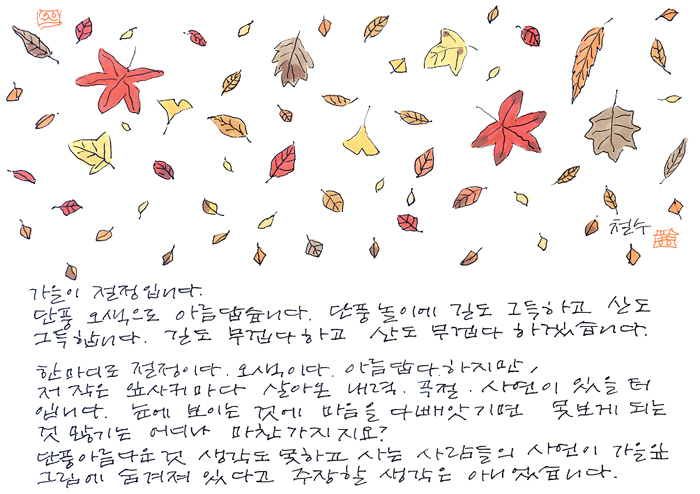 철수
가을이 절정입니다.
단풍 오색으로 아름답습니다. 단풍놀이에 길도 그득하고 산도
그득합니다. 길도 무겁다하고 산도 무겁다 하겠습니다.
한마디로 절정이다. 오색이다. 아름답다.하지만,
저 작은 잎사귀마다 살아온 내력. 곡절. 사연이 있을 터
입니다. 눈에 보이는 것에 마음을 다빼앗기면 못보게 되는
것 많기는 어디나 마찬가지지요?
단풍아름다운것 생각도 못하고 사는 사람들의 사연이 가을잎
그림에 숨겨져 있다고 주장할 생각은 아니었습니다.